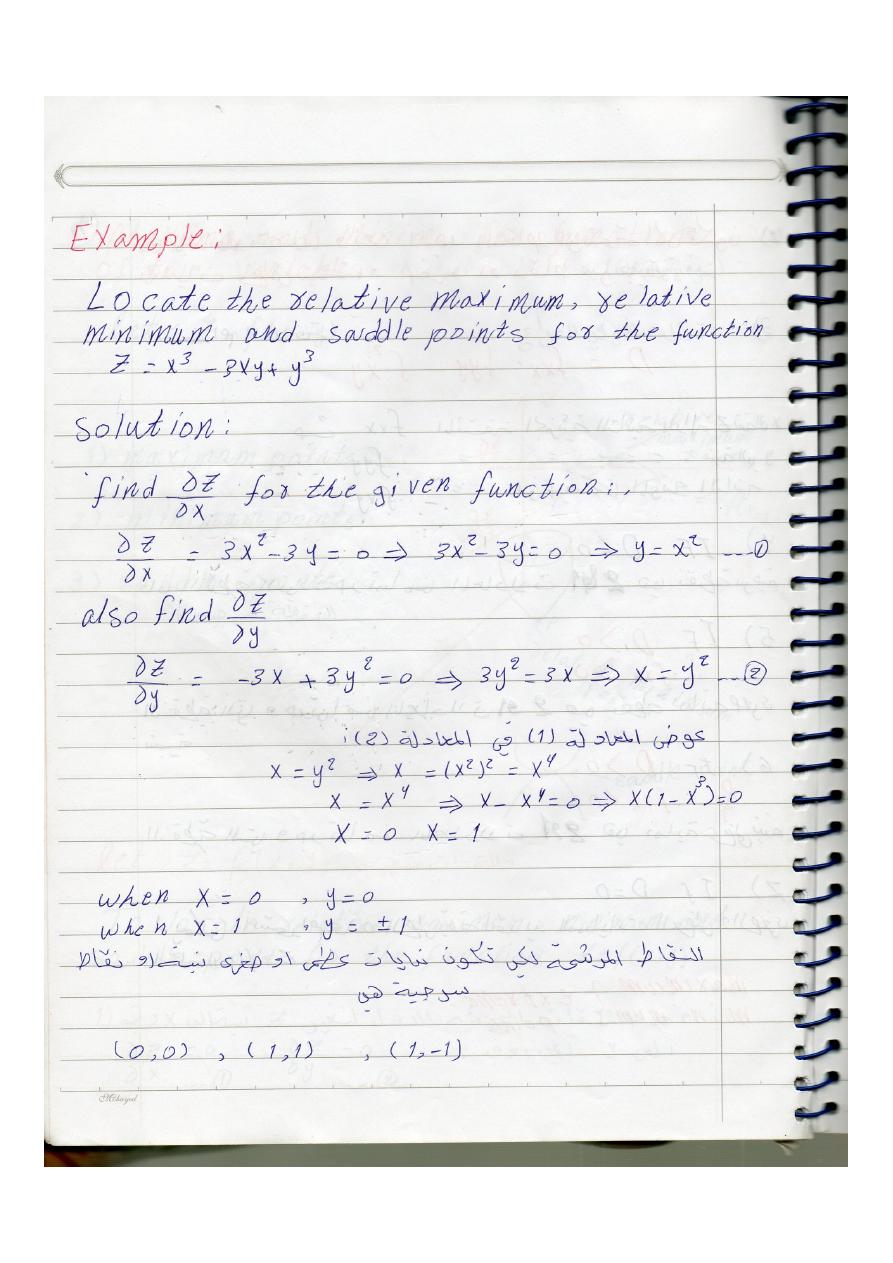 Example:
Locate the relative maximum, relative
minimum and saddle points for the function
Z = x³ - 3xy + y³
Solution:
find ∂Z/∂x for the given function:
∂Z/∂x = 3x² - 3y = 0 ⇒ 3x² - 3y = 0 ⇒ y = x² ---①
also find ∂Z/∂y
∂Z/∂y = -3x + 3y² = 0 ⇒ 3y² = 3x ⇒ x = y² ---②
عوض المعادلة (1) في المعادلة (2):
x = y² ⇒ x = (x²)² = x⁴
x = x⁴ ⇒ x - x⁴ = 0 ⇒ x(1 - x³) = 0
x = 0 x = 1
when x = 0 , y = 0
when x = 1 , y = ±1
النقاط المرشحة لكي تكون نهايات عظمى او صغرى نسبية او نقاط
سرجية هي
(0,0) , (1,1) , (1,-1)